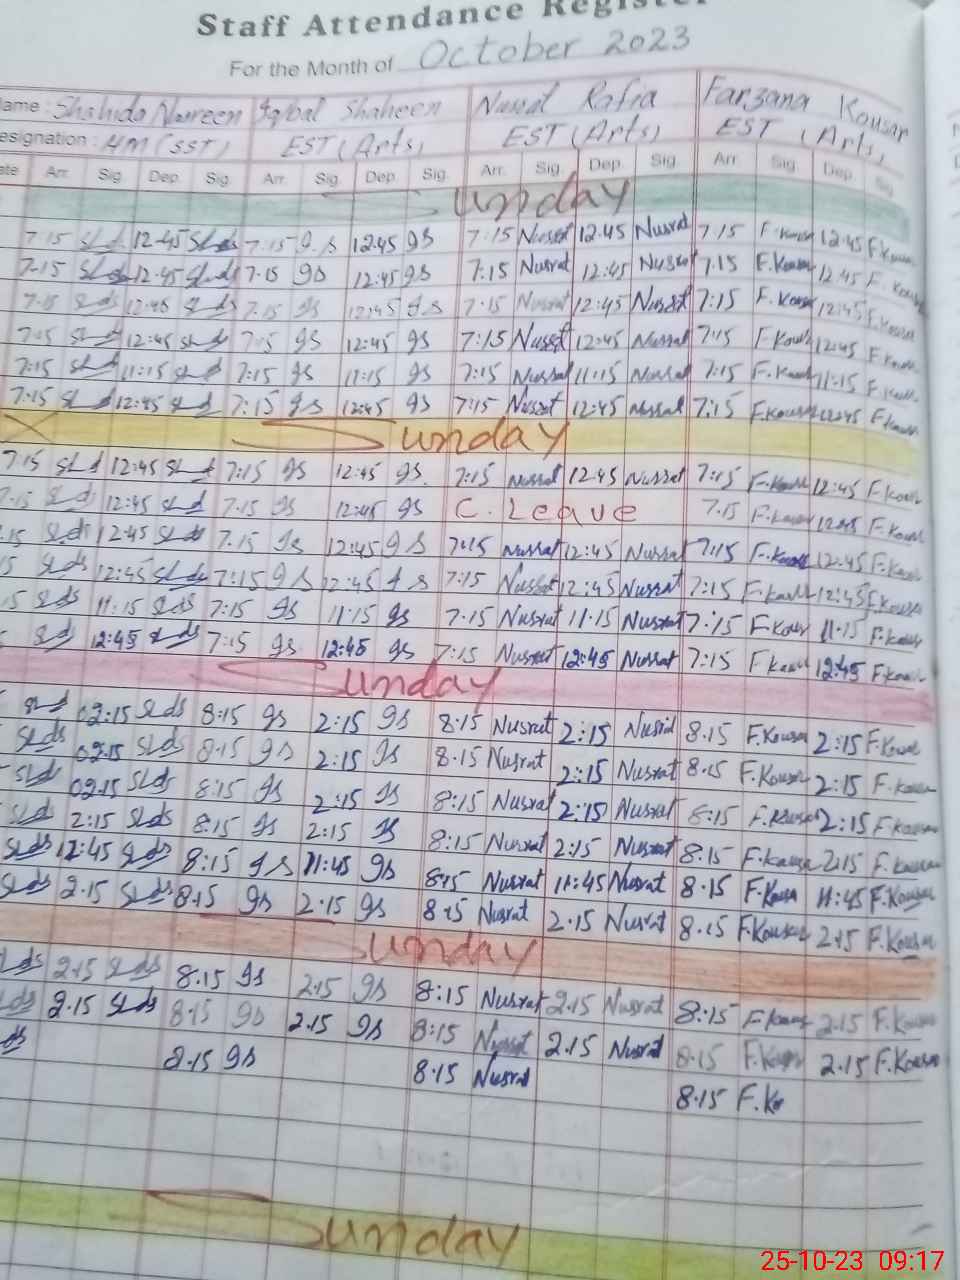 Staff Attendance Register
For the Month of October 2023
ame : Shahida Nasreen Iqbal Shaheen Nusrat Rafia Farzana Kousar
esignation : HM (SST) EST (Arts) EST (Arts) EST (Arts)
ate Arr. Sig. Dep. Sig. Arr. Sig. Dep. Sig. Arr. Sig. Dep. Sig. Arr. Sig. Dep. Sig.
Sunday
7:15 12:45 7:15 gs 12:45 gs 7:15 Nusrat 12:45 Nusrat 7:15 F.Kousar 12:45 F.Kousar
7:15 12:45 7:15 gs 12:45 gs 7:15 Nusrat 12:45 Nusrat 7:15 F.Kousar 12:45 F.Kousar
7:15 12:45 7:15 gs 12:45 gs 7:15 Nusrat 12:45 Nusrat 7:15 F.Kousar 12:45 F.Kousar
7:15 12:45 7:15 gs 12:45 gs 7:15 Nusrat 12:45 Nusrat 7:15 F.Kousar 12:45 F.Kousar
7:15 11:15 7:15 gs 11:15 gs 7:15 Nusrat 11:15 Nusrat 7:15 F.Kousar 11:15 F.Kousar
7:15 12:45 7:15 gs 12:45 gs 7:15 Nusrat 12:45 Nusrat 7:15 F.Kousar 12:45 F.Kousar
Sunday
7:15 12:45 7:15 gs 12:45 gs 7:15 Nusrat 12:45 Nusrat 7:15 F.Kousar 12:45 F.Kousar
7:15 12:45 7:15 gs 12:45 gs C. Leave 7:15 F.Kousar 12:45 F.Kousar
:15 Slds 12:45 Slds 7:15 gs 12:45 gs 7:15 Nusrat 12:45 Nusrat 7:15 F.Kousar 12:45 F.Kousar
15 Slds 12:45 Slds 7:15 gs 12:45 gs 7:15 Nusrat 12:45 Nusrat 7:15 F.Kousar 12:45 F.Kousar
15 Slds 11:15 Slds 7:15 gs 11:15 gs 7:15 Nusrat 11:15 Nusrat 7:15 F.Kousar 11:15 F.Kousar
12:45 Slds 7:15 gs 12:45 gs 7:15 Nusrat 12:45 Nusrat 7:15 F.Kousar 12:45 F.Kousar
Sunday
02:15 Slds 8:15 gs 2:15 gs 8:15 Nusrat 2:15 Nusrat 8:15 F.Kousar 2:15 F.Kousar
Slds 02:15 Slds 8:15 gs 2:15 gs 8:15 Nusrat 2:15 Nusrat 8:15 F.Kousar 2:15 F.Kousar
Slds 02:15 Slds 8:15 gs 2:15 gs 8:15 Nusrat 2:15 Nusrat 8:15 F.Kousar 2:15 F.Kousar
Slds 2:15 Slds 8:15 gs 2:15 gs 8:15 Nusrat 2:15 Nusrat 8:15 F.Kousar 2:15 F.Kousar
Slds Slds 8:15 gs 11:45 gs 8:15 Nusrat 11:45 Nusrat 8:15 F.Kousar 11:45 F.Kousar
Slds 2:15 Slds 8:15 gs 2:15 gs 8:15 Nusrat 2:15 Nusrat 8:15 F.Kousar 2:15 F.Kousar
Sunday
lds 2:15 Slds 8:15 gs 2:15 gs 8:15 Nusrat 2:15 Nusrat 8:15 F.Kousar 2:15 F.Kousar
lds 2:15 Slds 8:15 gs 2:15 gs 8:15 Nusrat 2:15 Nusrat 8:15 F.Kousar 2:15 F.Kousar
ds 8:15 gs 8:15 Nusrat 8:15 F.Ko
Sunday
25-10-23 09:17